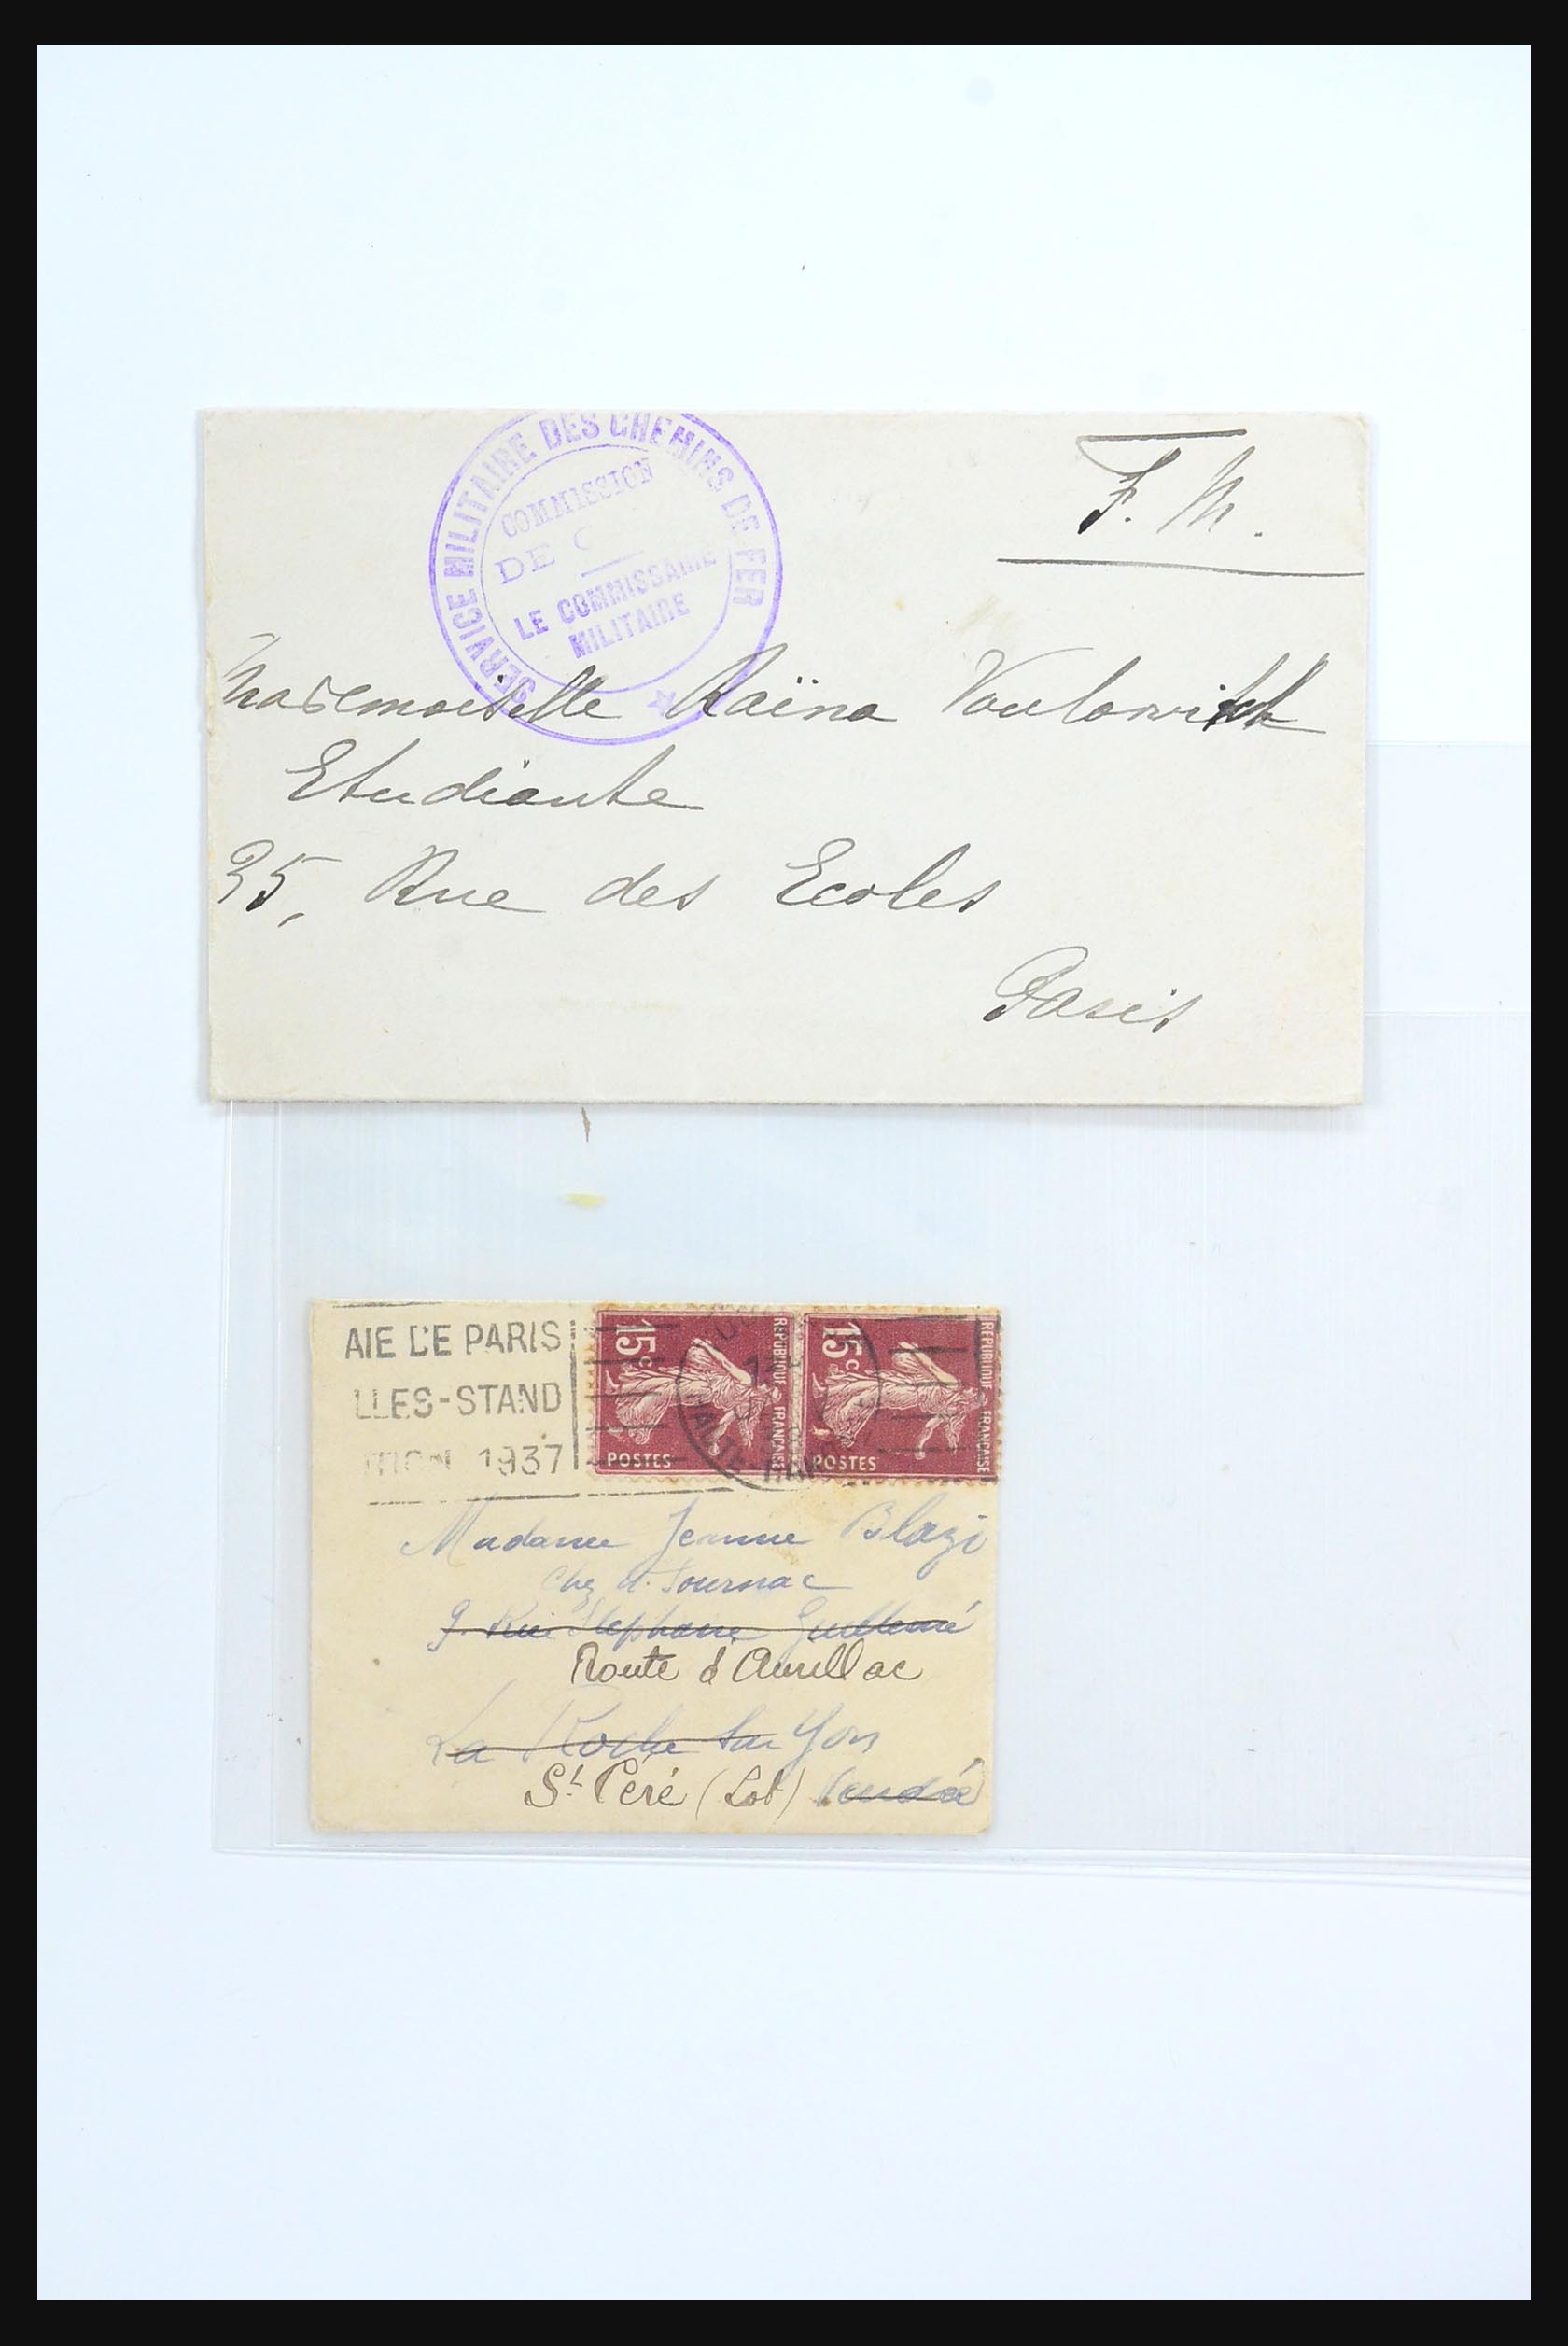 SERVICE MILITAIRE DES CHEMINS DE FER
COMMISSION
DE
LE COMMISSAIRE
MILITAIRE
F. M.
Mademoiselle Raïna
Etudiante
35, Rue des Ecoles
Paris
AIE DE PARIS
LLES-STAND
1937
15c
REPUBLIQUE FRANÇAISE
POSTES
15c
REPUBLIQUE FRANÇAISE
POSTES
Madame Jeanne Blazi
Chez M. Tournac
9. Rue Stephane Guillemé
Route d'Aurillac
La Roche sur Yon
St Céré (Lot) Vendée